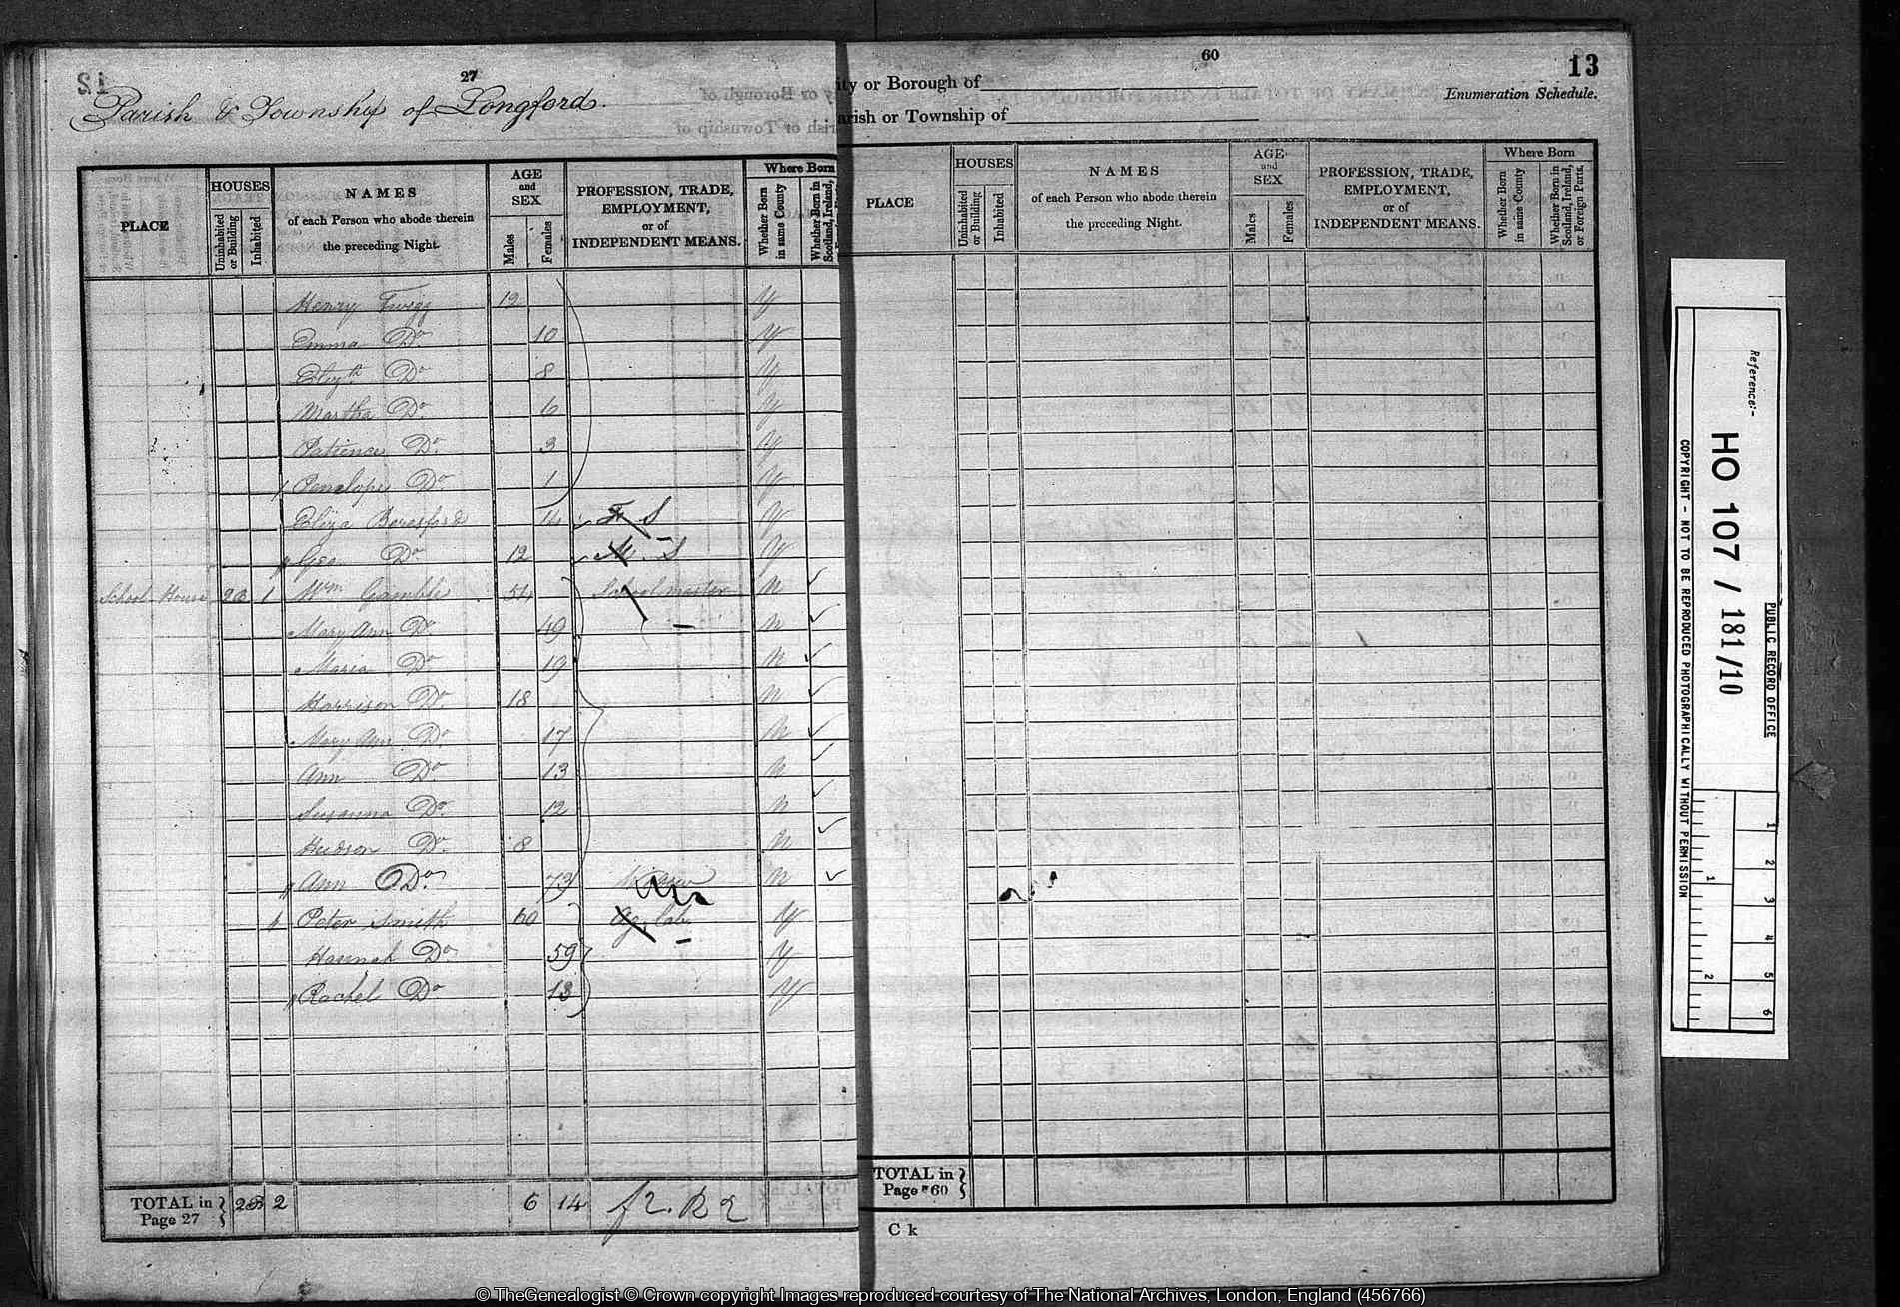 27
Parish & Township of Longford.
PLACE
HOUSES
Uninhabited or Building
Inhabited
NAMES
of each Person who abode therein
the preceding Night.
AGE
and
SEX
Males
Females
PROFESSION, TRADE,
EMPLOYMENT,
or of
INDEPENDENT MEANS.
Where Born
Whether Born in same County
Whether Born in Scotland, Ireland,
Henry Twigg 12 Y
Emma Do 10 Y
Elizth Do 8 Y
Martha Do 6 Y
Patience Do 3 Y
Penelope Do 1 Y
Eliza Beresford 14 F S Y
Geo Do 12 M. S Y
School House 1 Wm Gamble 54 Schoolmaster N
Mary Ann Do 49 N
Maria Do 19 N
Harrison Do 18 N
Mary Ann Do 17 N
Ann Do 13 N
Susanna Do 12 N
Hudson Do 8 N
Ann Do 73 N
1 Peter Smith 60 Ag. lab Y
Hannah Do 59 Y
Rachel Do 13 Y
TOTAL in
Page 27 } 2 6 14
60
13
ity or Borough of
arish or Township of
Enumeration Schedule.
PLACE
HOUSES
Uninhabited or Building
Inhabited
NAMES
of each Person who abode therein
the preceding Night.
AGE
and
SEX
Males
Females
PROFESSION, TRADE,
EMPLOYMENT,
or of
INDEPENDENT MEANS.
Where Born
Whether Born in same County
Whether Born in Scotland, Ireland, or Foreign Parts.
TOTAL in
Page 60 }
C k
Reference:-
HO 107 / 181/10
PUBLIC RECORD OFFICE
COPYRIGHT - NOT TO BE REPRODUCED PHOTOGRAPHICALLY WITHOUT PERMISSION
1 2 3 4 5 6
1 2
© TheGenealogist © Crown copyright Images reproduced courtesy of The National Archives, London, England (456766)